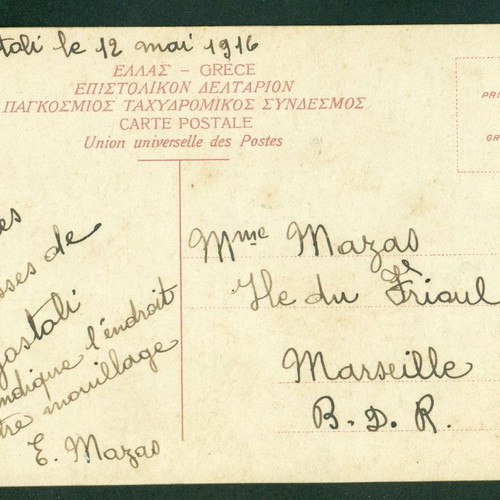 le 12 mai 1916
ΕΛΛΑΣ – GRÈCE
ΕΠΙΣΤΟΛΙΚΟΝ ΔΕΛΤΑΡΙΟΝ
ΠΑΓΚΟΣΜΙΟΣ ΤΑΧΥΔΡΟΜΙΚΟΣ ΣΥΝΔΕΣΜΟΣ
CARTE POSTALE
Union universelle des Postes
de
l'endroit
mouillage
E. Mazas
Mme Mazas
Ile du Frioul
Marseille
B. D. R.